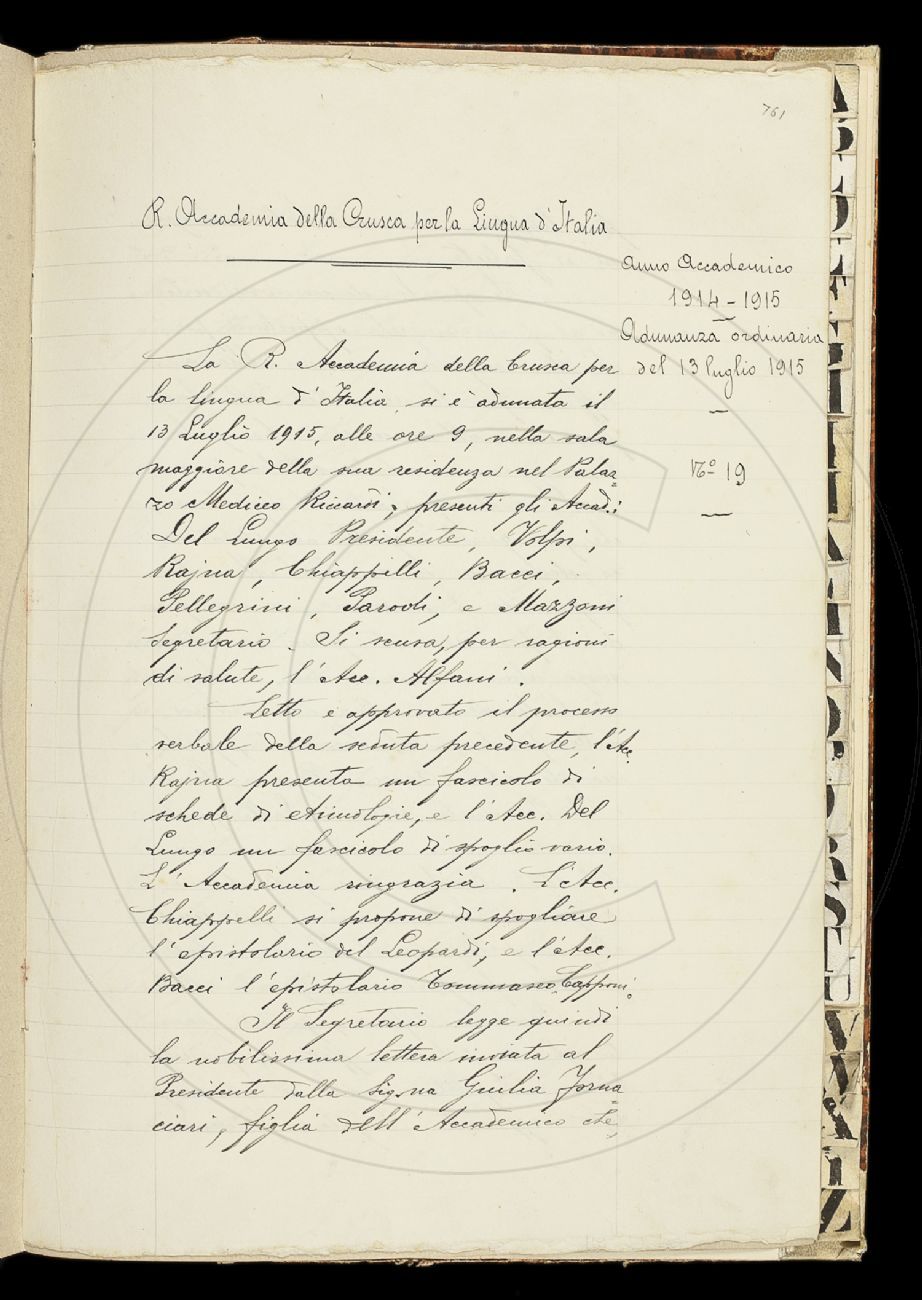 761
R. Accademia della Crusca per la Lingua d'Italia
Anno Accademico
1914-1915
Adunanza ordinaria
del 13 luglio 1915
Nº 19
La R. Accademia della Crusca per
la lingua d'Italia si è adunata il
13 Luglio 1915, alle ore 9, nella sala
maggiore della sua residenza nel Palaz=
zo Mediceo Riccardi, presenti gli Accad.i
Del Lungo Presidente, Volpi,
Rajna, Chiappelli, Bacci,
Pellegrini, Parodi, e Mazzoni
Segretario. Si scusa, per ragioni
di salute, l'Acc. Alfani.
Letto e approvato il processo
verbale della seduta precedente, l'Acc.
Rajna presenta un fascicolo di
schede di etimologie, e l'Acc. Del
Lungo un fascicolo di spoglio vario.
L'Accademia ringrazia. L'Acc.
Chiappelli si propone di spogliare
l'epistolario del Leopardi, e l'Acc.
Bacci l'epistolario Tommaseo-Capponi.
Il Segretario legge quindi
la nobilissima lettera inviata al
Presidente dalla Sig.na Giulia Forna=
ciari, figlia dell'Accademico che,
A
B
C
D
E
F
G
H
I
L
M
N
O
P
Q
R
S
T
U
V
W
X
Y
Z